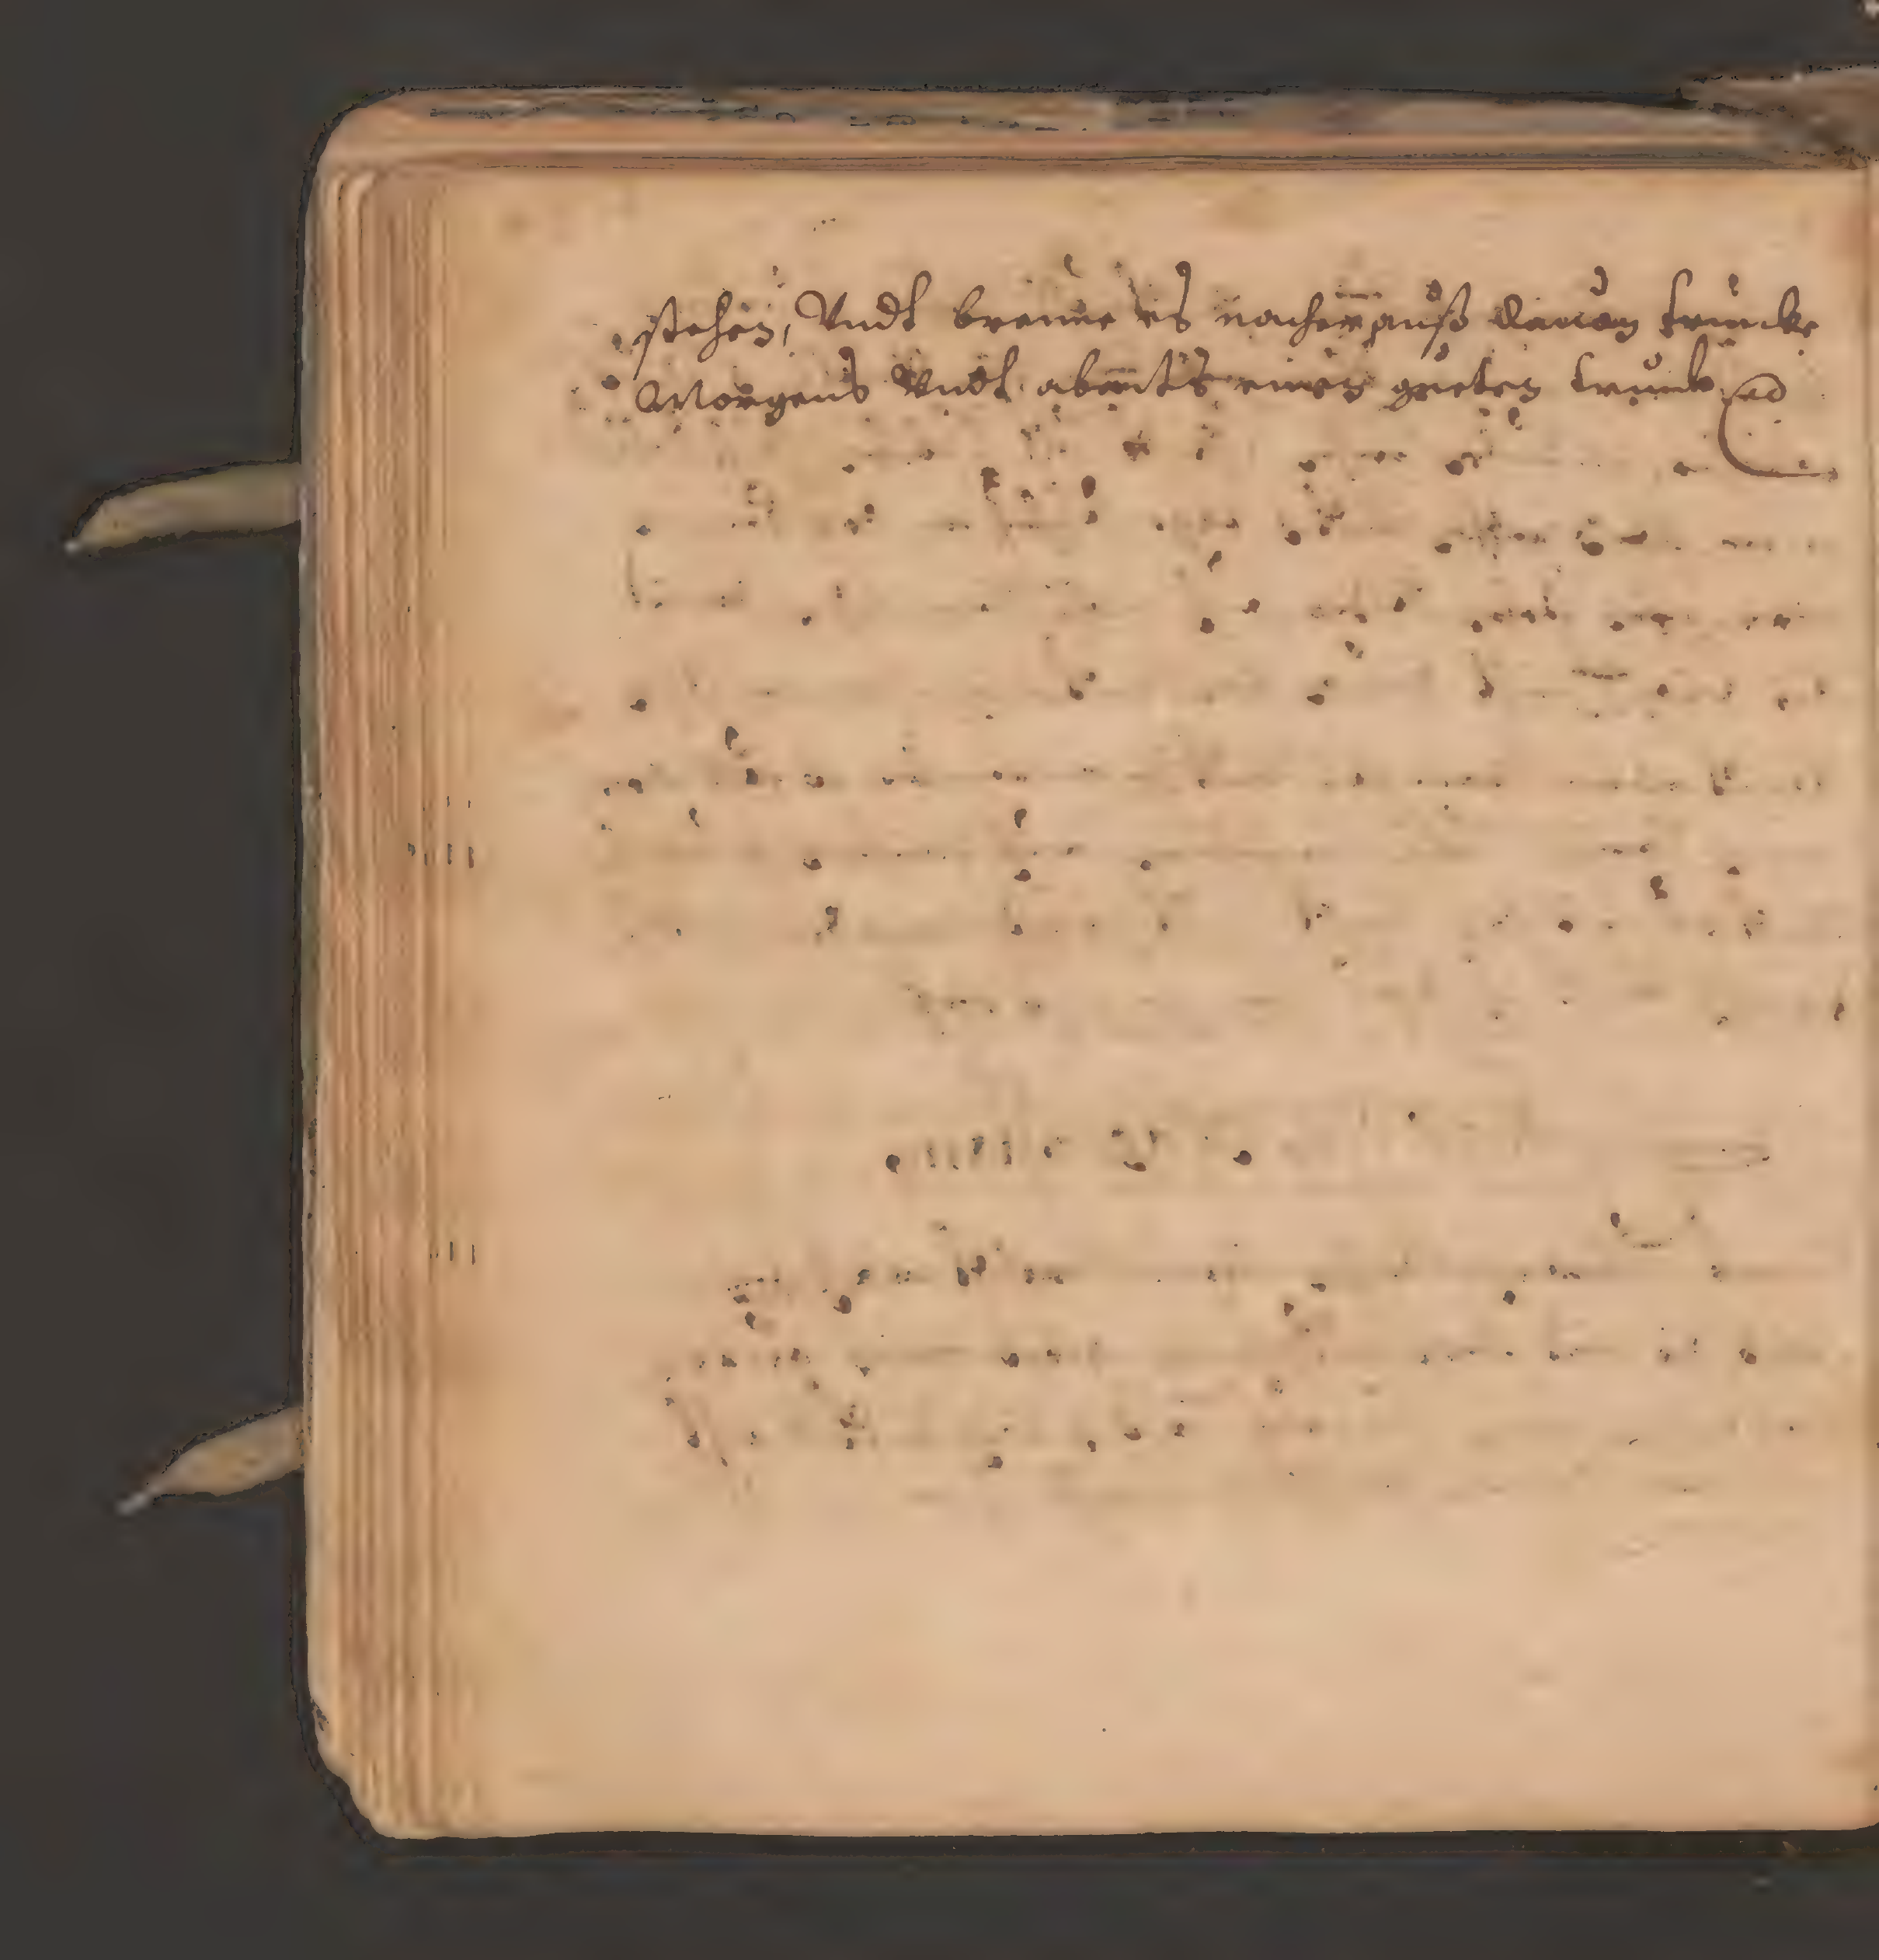 stehen, Vndt brenne es nacher auß dauon trincke
Morgens Vndt abents einen gueten trunck